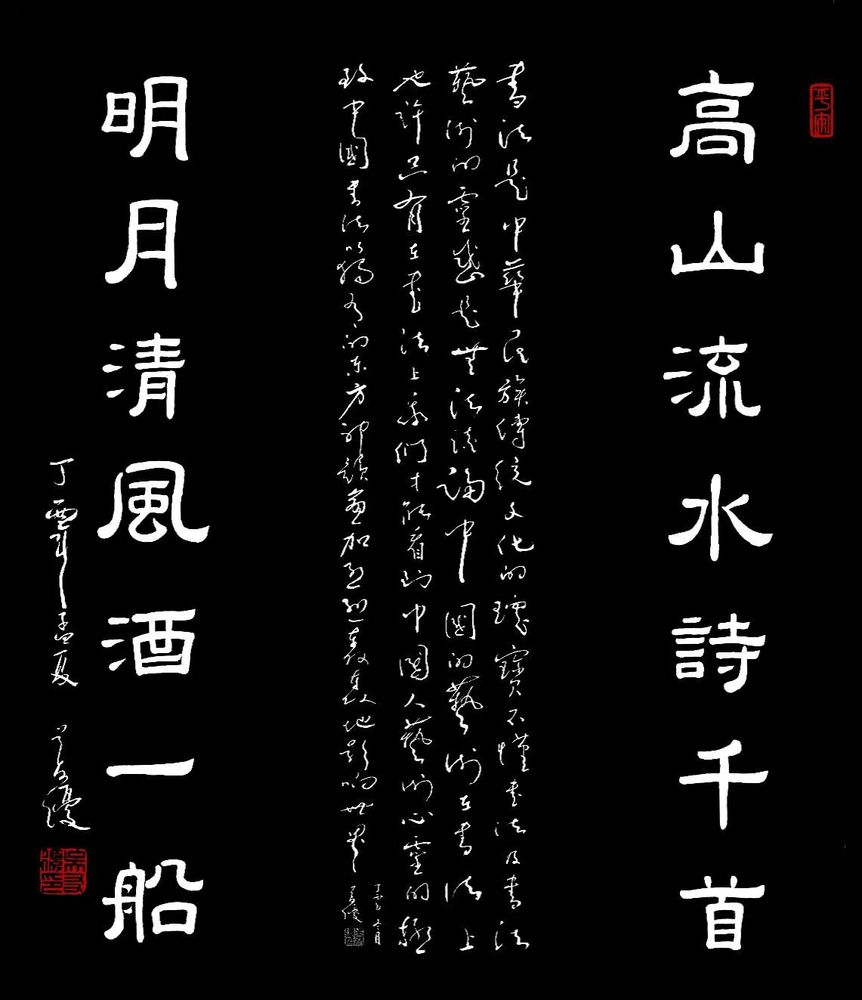 高山流水詩千首
書法是中華民族傳統文化的瑰寶不懂書法及書法
藝術的靈感是無法談論中國的藝術在書法上
也許只有在書法上我們才能看到中國人藝術心靈的極
致中國書法以獨有的東方神韻愈加強烈義無地影响世界
丁酉年五月
明月清風酒一船
丁酉年孟夏